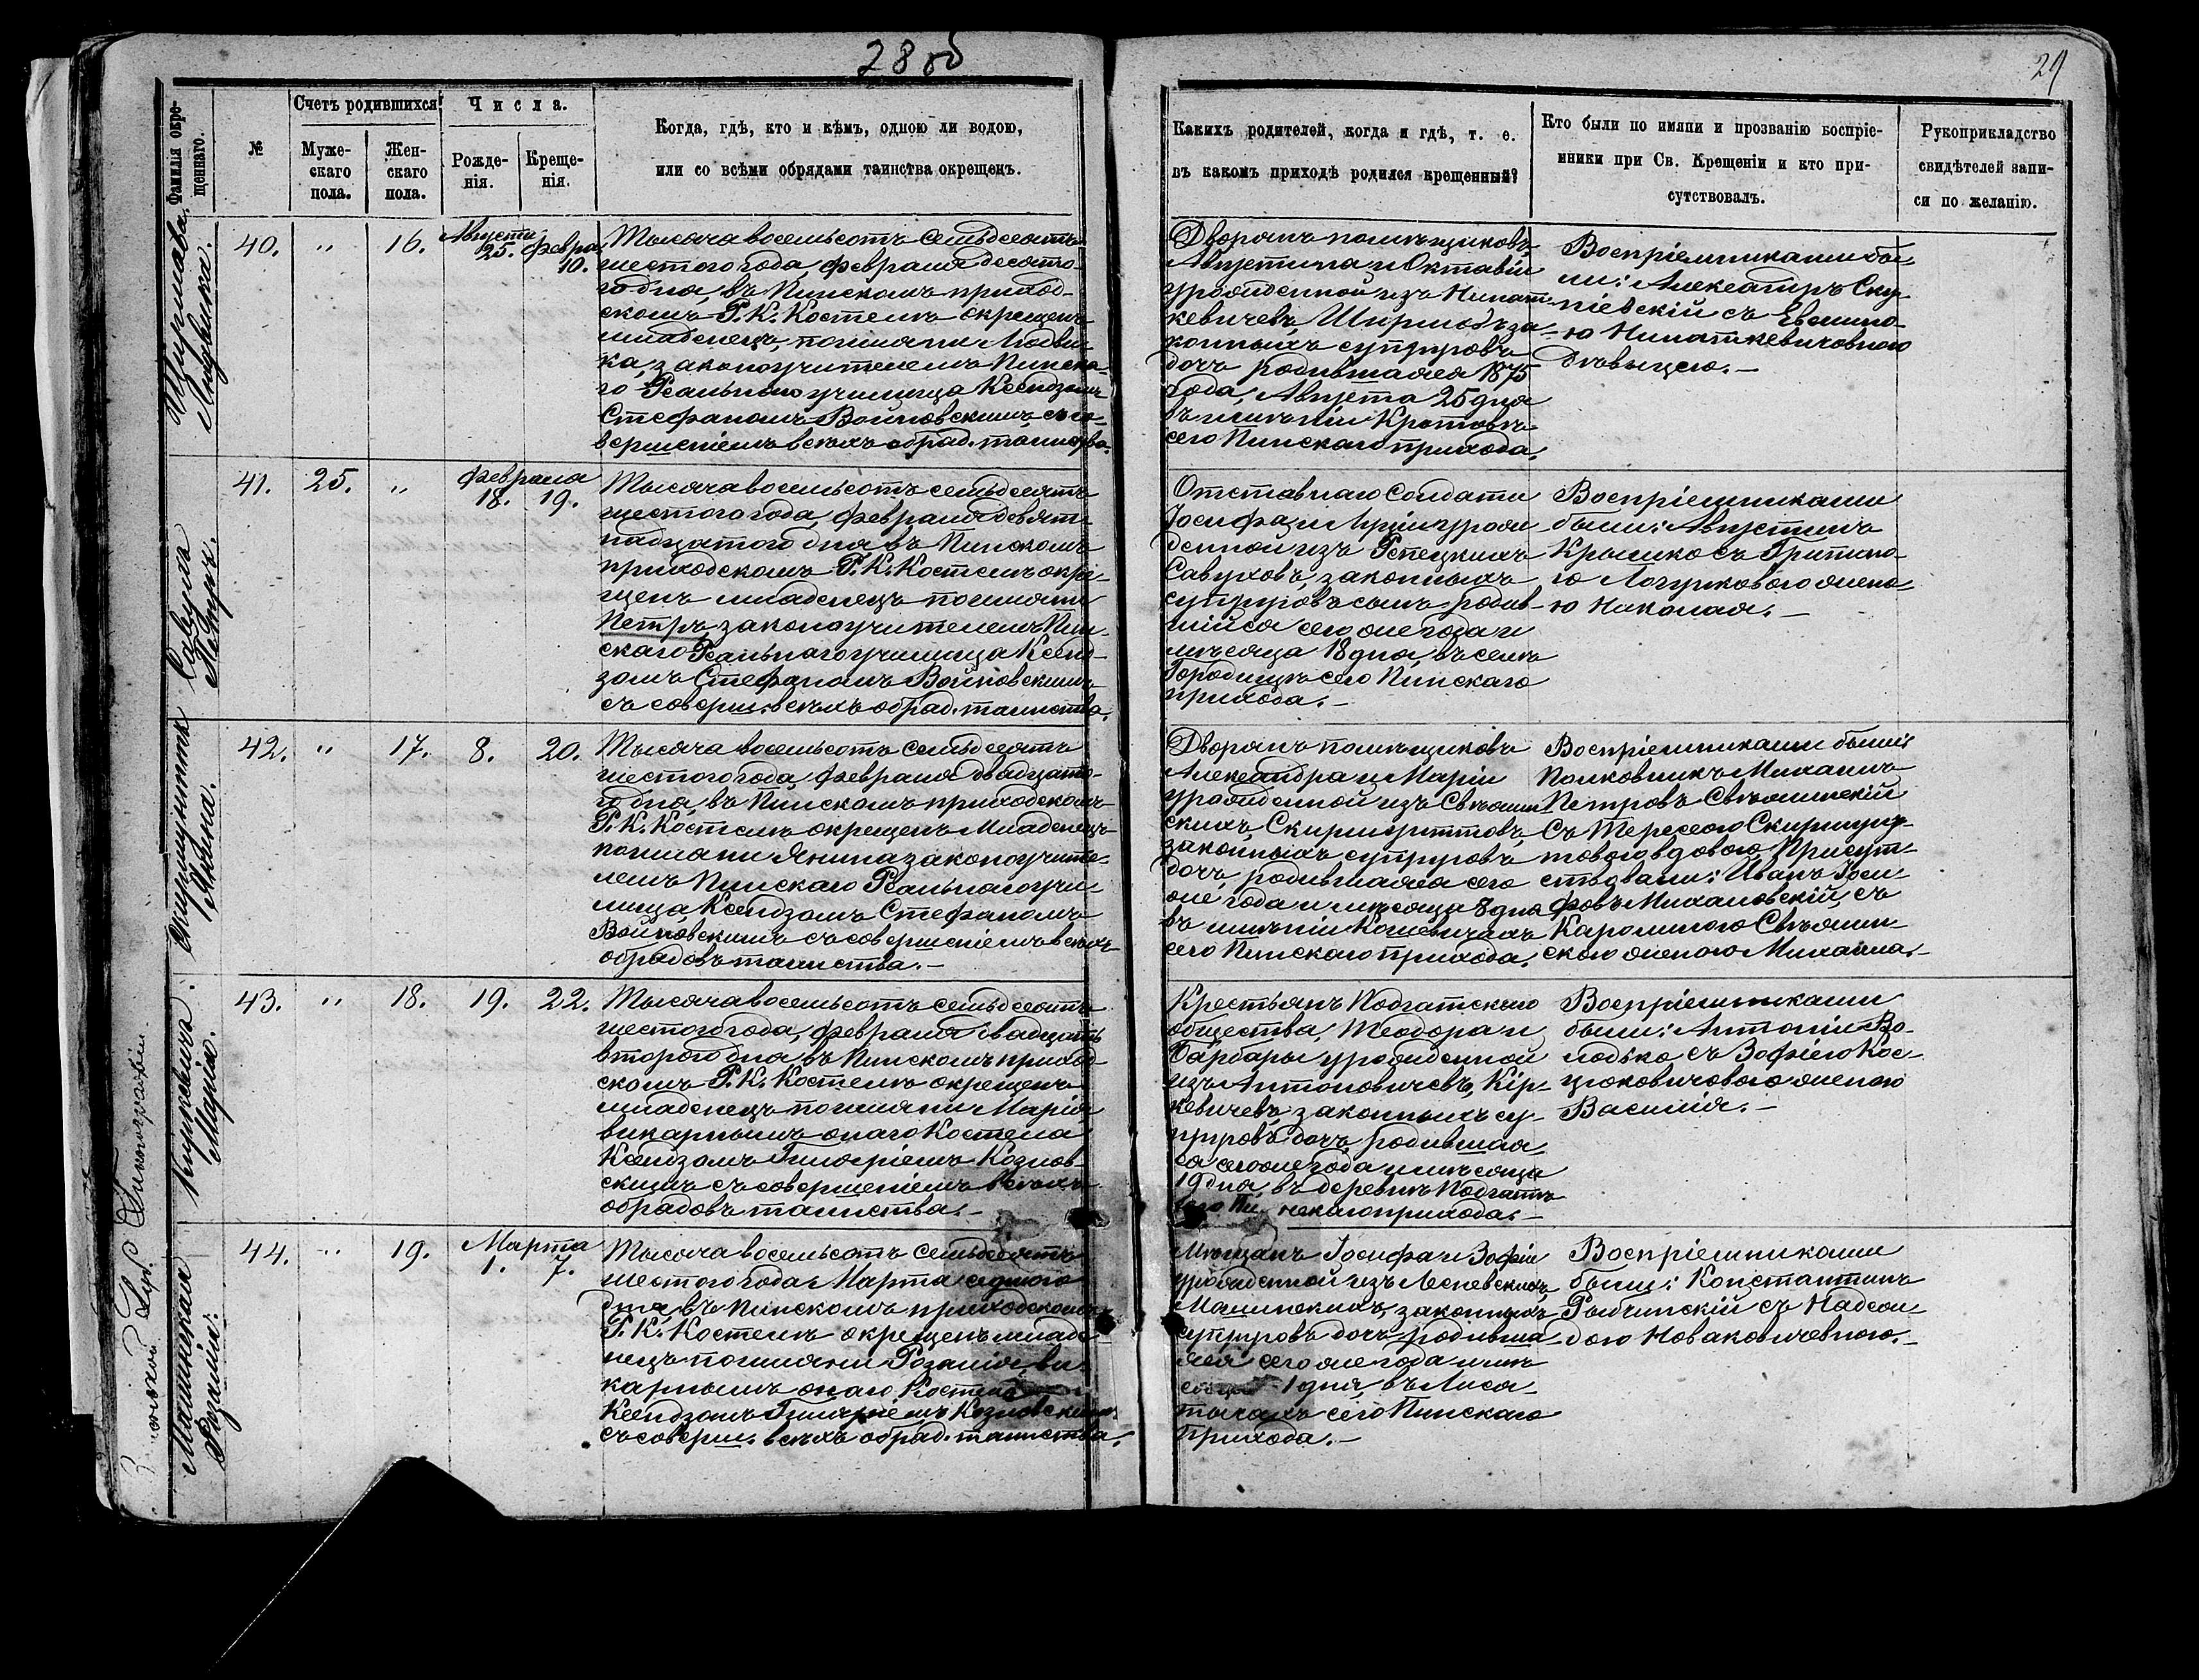 28 об
29
Фамилія окре-
щеннаго.
№
Счетъ родившихся
Муже-
скаго
пола.
Жен-
скаго
пола.
Числа.
Рожде-
нія.
Креще-
нія.
Когда, гдѣ, кто и кѣмъ, одною ли водою,
или со всѣми обрядами таинства окрещенъ.
Какихъ родителей, когда и гдѣ, т. е.
въ какомъ приходѣ родился крещенный?
Кто были по имяни и прозванію воспріе-
мники при Св. Крещеніи и кто при-
сутствовалъ.
Рукоприкладство
свидѣтелей запи-
си по желанію.
Ширмова.
Людвика.
40. " 16. Августа 25. Февра. 10.
Тысяча восемьсотъ семьдесятъ
шестого года, Февраля десято-
го дня, въ Пинскомъ приход-
скомъ Р. К. Костелѣ окрещенъ
младенецъ, по имяни Людви-
ка, законоучителемъ Пинска-
го Реальнаго училища Ксендзомъ
Стефаномъ Войновскимъ, съ со-
вершеніемъ всѣхъ обряд. таинства.
Дворянъ помѣщиковъ
Августина и Октавіи
урожденной изъ
кевичевъ, за-
конныхъ супруговъ
дочь, родившаяся 1875
года, Августа 25 дня
въ имѣніи Кротовѣ
сего Пинскаго прихода.
Воспріемниками бы-
ли: Александръ Ску-
піевскій съ
ю
дѣвицею.—
Савуха
Петръ.
41. 25. " Февраля 18. 19.
Тысяча восемьсотъ семьдесятъ
шестого года, Февраля девят-
надцатого дня въ Пинскомъ
приходскомъ Р. К. Костелѣ окре-
щенъ младенецъ по имяни
Петръ, законоучителемъ Пин-
скаго Реальнаго училища Ксенд-
зомъ Стефаномъ Войновскимъ
съ соверш. всѣхъ обряд. таинства.
Отставнаго Солдата
Іосифа и урож-
денной изъ Репецкихъ
Савуховъ, законныхъ
супруговъ сынъ, родив-
шійся сего же года и
мѣсяца 18 дня, въ селѣ
Городищѣ сего Пинскаго
прихода.—
Воспріемниками
были: Августинъ
съ
ю жено-
ю Николая.—
Скирмунтъ
Янина.
42. " 17. 8. 20.
Тысяча восемьсотъ семьдесятъ
шестого года, Февраля двадцато-
го дня, въ Пинскомъ приходскомъ
Р. К. Костелѣ окрещенъ Младенецъ
по имяни Янина законоучите-
лемъ Пинскаго Реальнаго учи-
лища, Ксендзомъ Стефаномъ
Войновскимъ съ совершеніемъ всѣхъ
обрядовъ таинства.—
Дворянъ помѣщиковъ
Александра и Маріи
урожденной изъ Свѣжин-
скихъ, Скирмунтовъ,
законныхъ супруговъ
дочь, родившаяся сего
же года и мѣсяца 8 дня
въ имѣніи
сего Пинскаго прихода.
Воспріемниками были:
Полковникъ Михаилъ
Петровъ Свѣжинскій
съ Терезею Скирмун-
товою вдовою, Присут-
ствовали: Иванъ Іоси-
фовъ Михаловскій, съ
Каролиною Свѣжин-
скою женою Михаила.—
Киркевичъ.
Марія.
43. " 18. 19. 22.
Тысяча восемьсотъ семьдесятъ
шестого года, Февраля двадцать
второго дня въ Пинскомъ приход-
скомъ Р. К. Костелѣ окрещенъ
младенецъ по имяни Марія,
викарнымъ онаго Костела
Ксендзомъ
скимъ съ совершеніемъ всѣхъ
обрядовъ таинства.—
Крестьянъ Подгатскаго
общества, Теодора и
Барбары урожденной
изъ Антоновичевъ, Кир-
кевичевъ, законныхъ су-
пруговъ дочь, родившая-
ся сего же года и мѣсяца
19 дня, въ деревнѣ Подгатѣ
сего Пинскаго прихода.—
Воспріемниками
были: Антоній Во-
лодько съ Зофіею Кос-
цюковичовою женою
Василія.—
Машинская
Розалія.
44. " 19. Марта 1. 7.
Тысяча восемьсотъ семьдесятъ
шестого года Марта седмого
дня, въ Пинскомъ приходскомъ
Р. К. Костелѣ окрещенъ младе-
нецъ по имяни Розалія, ви-
карнымъ онаго Костела
Ксендзомъ
съ соверш. всѣхъ обряд. таинства.
Мѣщанъ Іосифа и Зофіи
урожденной изъ Лесневскихъ,
Машинскихъ, законныхъ
супруговъ дочь родивша-
яся сего же года и мѣ-
сяца 1 дня, въ Лиса-
тычахъ сего Пинскаго
прихода.—
Воспріемниками
были: Константинъ
Рымчинскій съ Надеж-
дою Новаковичевною.—